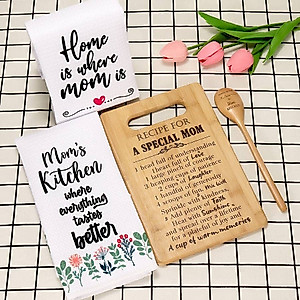 Home
is where
mom is
Mom's
Kitchen
where
everything
tastes
better
RECIPE FOR
A SPECIAL MOM
1 head full of understanding
1 heart full of Love
1 large pinch of courage
2 cups of Laughter
1 cup of generosity
Sprinkle with kindness
Add plenty of Faith
Heap with Sunshine
and spread over a lifetime
for a plateful of joy and
A cup of warm memories